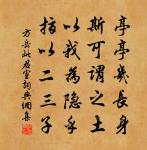 亭亭幾長身
斯可謂之士
以我為隱乎
指以二三子
方岳此君室詞典網集